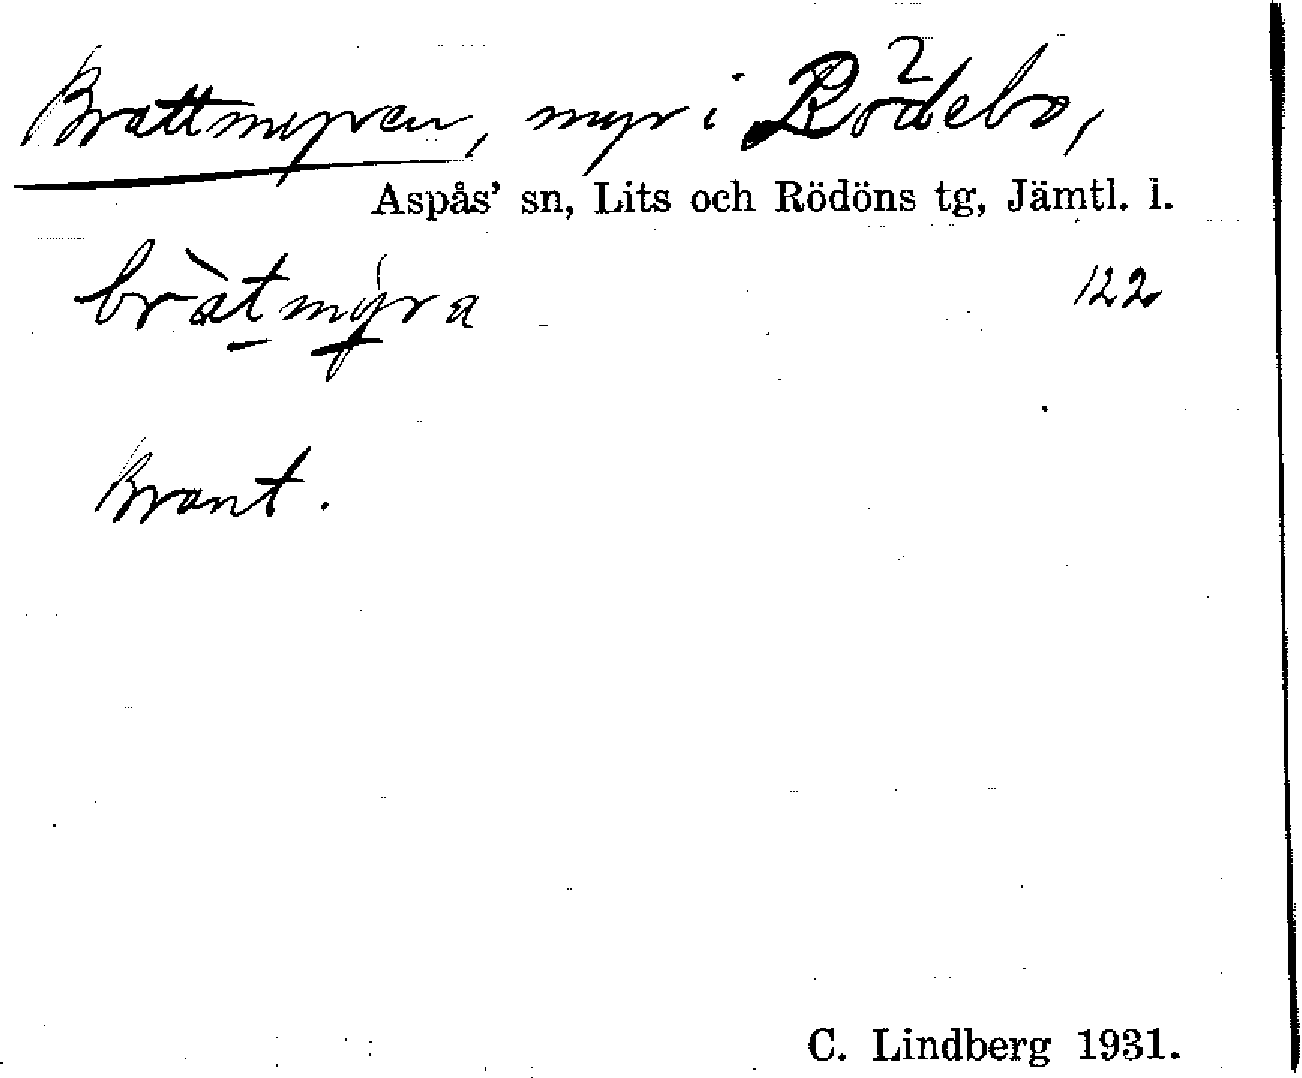 Brattmyren, myr i Rödebo,
Aspås' sn, Lits och Rödöns tg, Jämtl. l.
bràtmy̱ra
122
Brant.
C. Lindberg 1931.